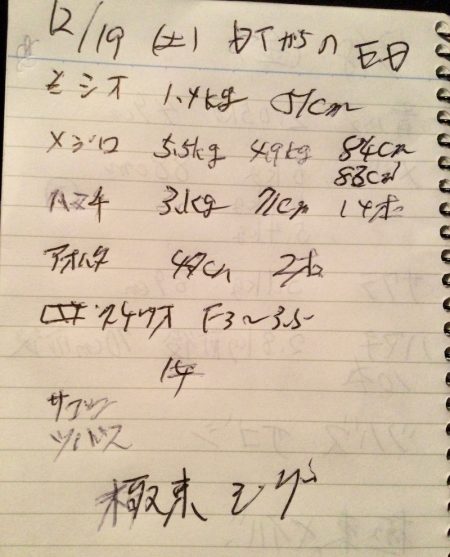 12/19 (土) からの
1.4kg 51cm
メジロ 5.5kg 4.9kg 84cm
83cm
ハマチ 3.1kg 71cm 14本
アオハタ 47cm 2本
F3〜3.5
サゴシ
ツバス
極東